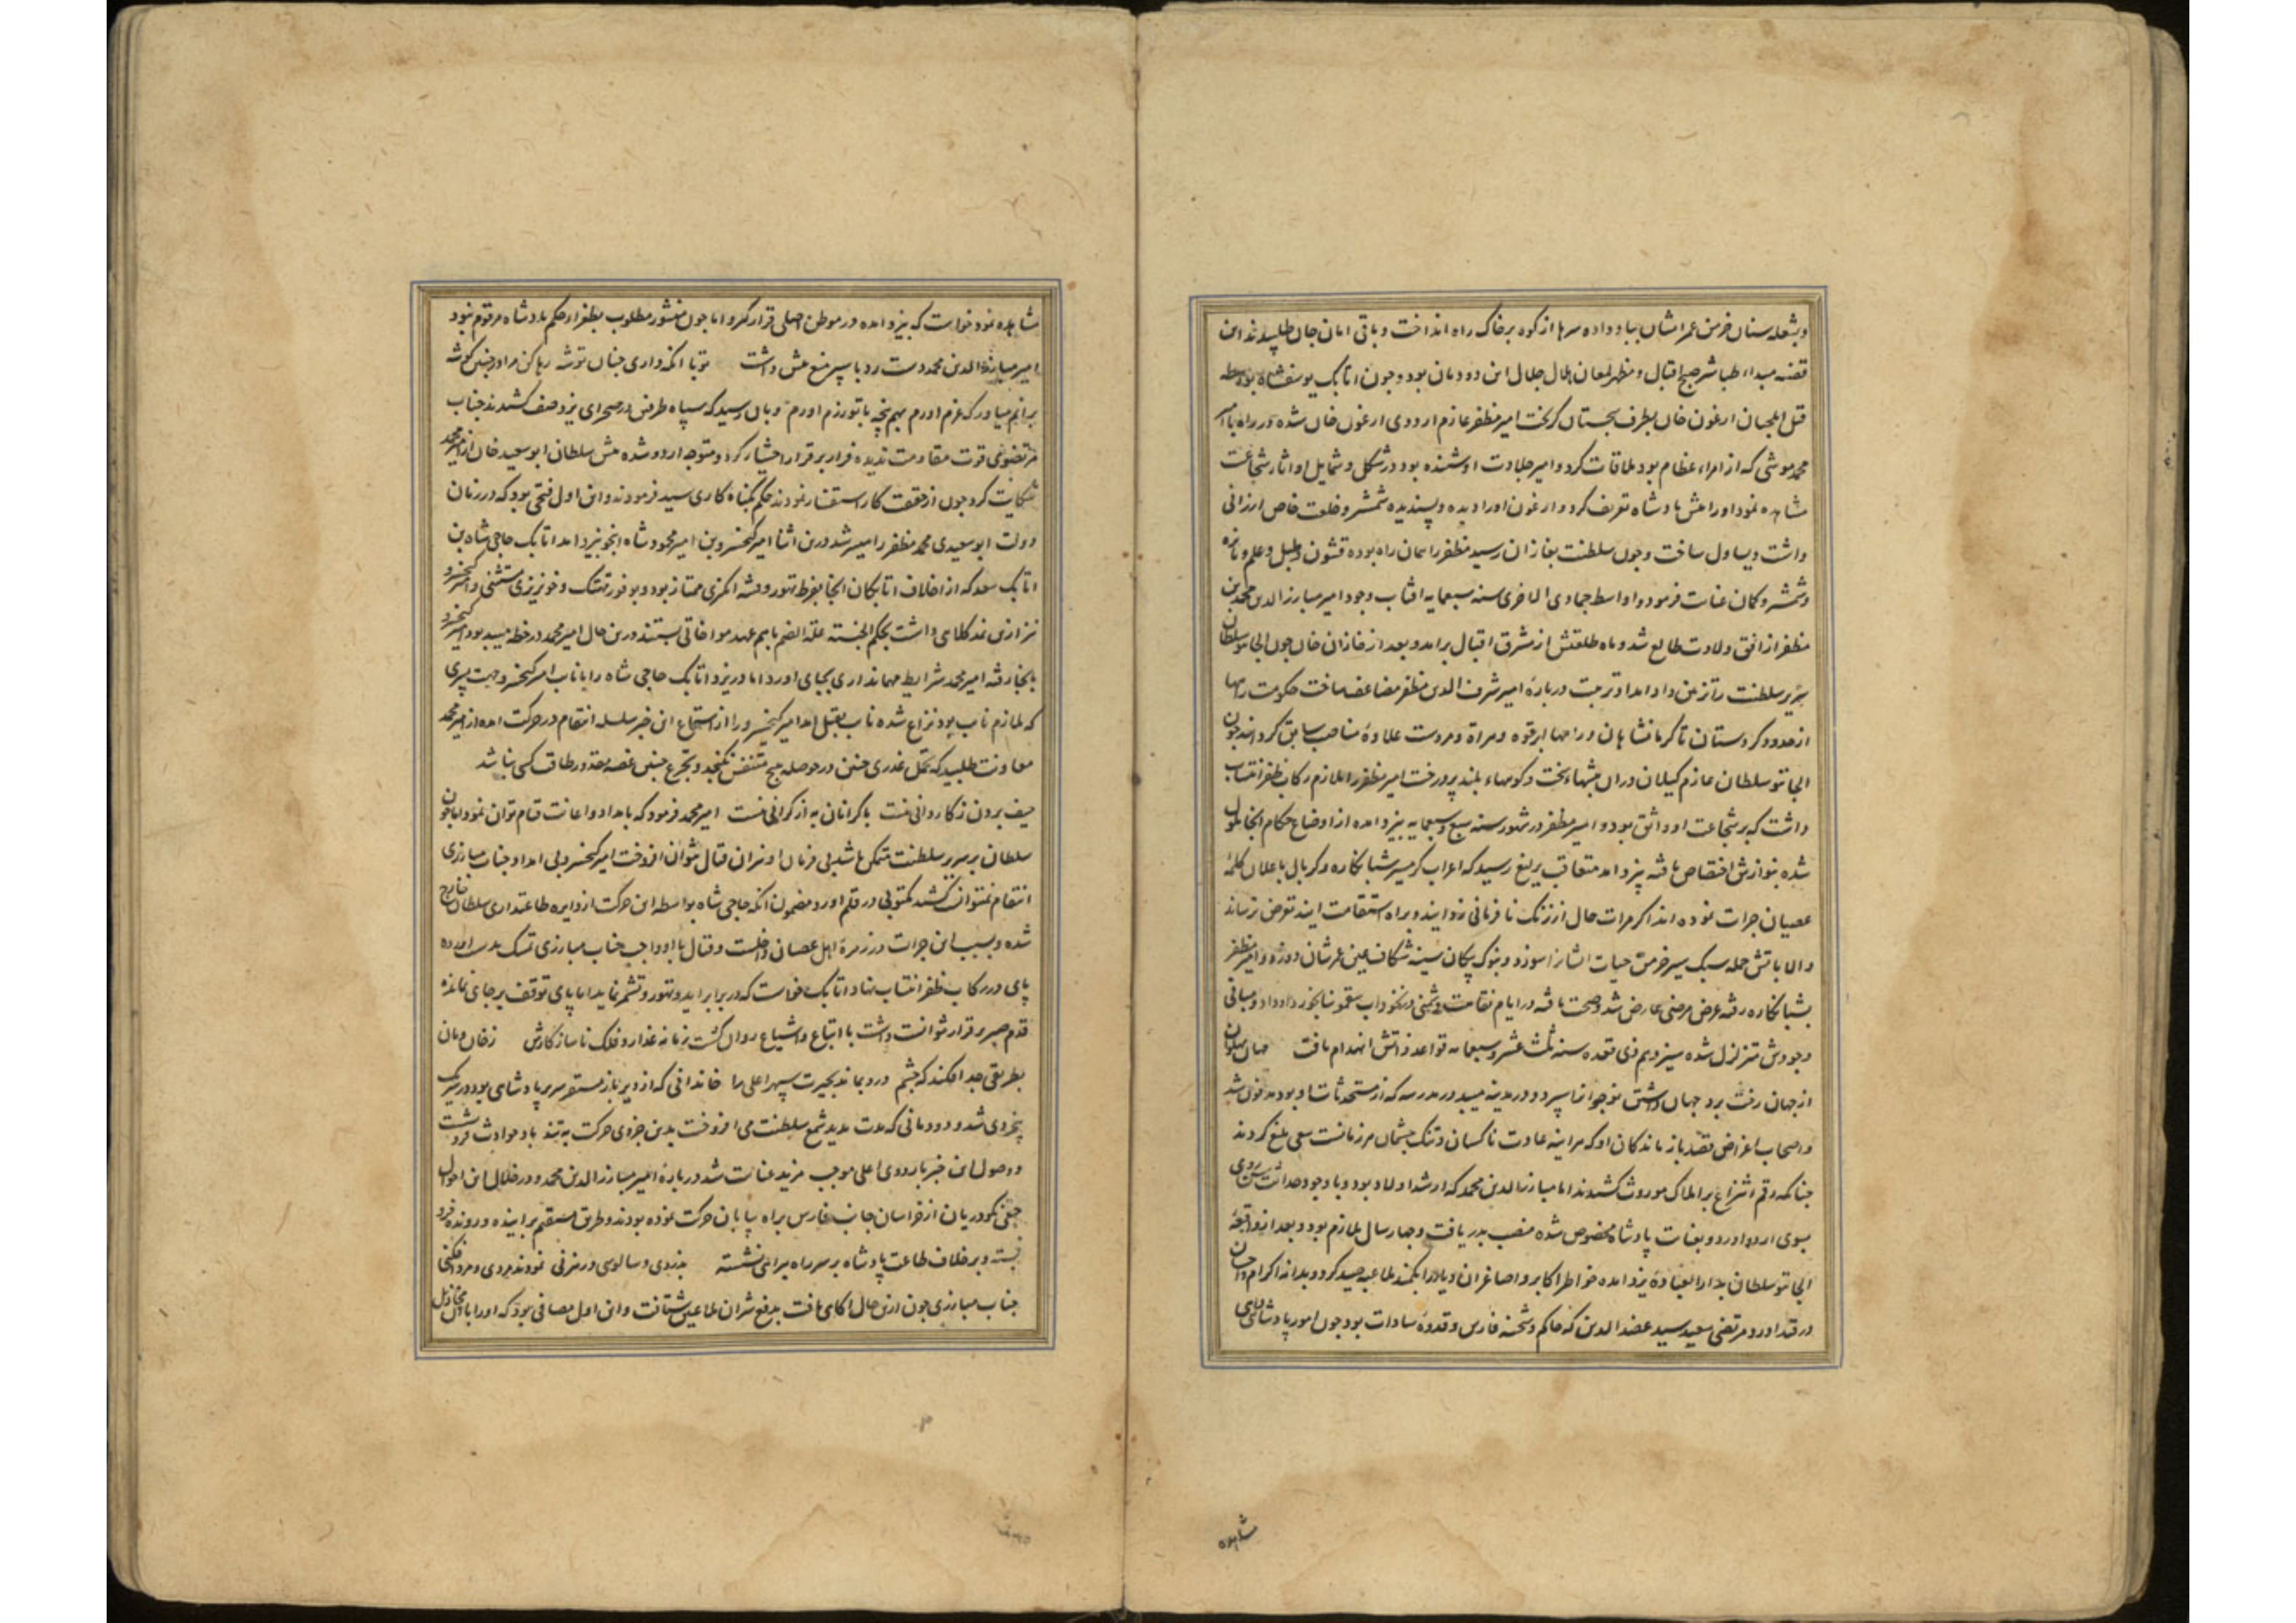 وبشعله سنان خرمن عمر ایشان بباد داده سرها از کوه بر خاک راه انداخت و باقی امان جان طلبیدند این
قضیه مبداء طباشیر صبح اقبال و مظهر لمعان هلال جلال این دودمان بود و چون اتابک یوسفشاه بواسطه
قتل ایلچیان ارغون خان بطرف سجستان کریخت امیر مظفر عازم اردوی ارغون خان شده در راه با امیر
محمد موشی که از امراء عظام بود ملاقات کرد و امیر جلادت او شنیده بود در شکل و شمایل او اثار شجاعت
مشاهده نمود اورا پیش پادشاه تعریف کرد و ارغون اورا دیده و پسندیده شمشیر و خلعت خاص ارزانی
داشت و یساول ساخت و چون سلطنت بغازان رسید مظفر را همان راه بوده قشون و طبل و علم و نایره
و شمشیر و کمان عنایت فرمود و اواسط جمادی الاخری سنه سبعمایه افتاب وجود امیر مبارز الدین محمد بن
مظفر از افق ولادت طالع شد و ماه طلعتش از مشرق اقبال برامد و بعد از غازان خان چون الجایتو سلطان
سریر سلطنت را تزئین داد امداد تربیت درباره امیر شرف الدین مظفر مضاعف ساخت حکومت راهها
از حدود کردستان تا کرمانشاهان و راهها ابرقوه و هراة و مروست علاوه مناصب سابق کردانید چون
الجایتو سلطان عازم کیلان و ران بیشهاء سخت و کوههاء بلند پر درخت امیر مظفر را ملازم رکاب ظفر انتساب
داشت که بر شجاعت او واثق بود و امیر مظفر در شهور سنه سبع و سبعمایه بیزد امده از اوضاع حکام انجا ملول
شده بنوازش اختصاص یافته بیزد امد متعاقب یرلیغ رسید که اعراب کرمسیر شبانکاره و کربال باعلان کلمه
عصیان جرات نموده اند اکر مرات حال از زنک نافرمانی زدایند و براه استقامت ایند تعرض نرساند
والا باتش حمله سبک سیر خرمن حیات ایشان را سوزد و بنوک پیکان سینه شکاف عین عمرشان دوزد و امیر مظفر
بشبانکاره رفته عرض مرضی عارض شد و صحت یافته در ایام نقاهت دشمنی در نخوداب سقمونیا بخورد او داد و مبانی
وجودش متزلزل شده سیزدهم ذی قعده سنه ثلث عشر و سبعمایه قواعد ذاتش انهدام یافت جهان پهلوان
از جهان رخت برد جهان داشتن نوجوانرا سپرد و در مدینه میبد در مدرسه که از مستحدثات او بود مدفون شد
و اصحاب اغراض قصد بازماندکان او که هر اینه عادت ناکسان و تنک چشمان هر زمانست سعی بلیغ کردند
چنانکه رقم انتزاع بر املاک موروث کشیدند اما مبارز الدین محمد که ارشد اولاد بود و با وجود حداثت سن روی
بسوی اردو اورد و بعنایت پادشاه مخصوص شده منصب پدر یافت و چهار سال ملازم بود و بعد از واقعه
الجایتو سلطان بدار العباده یزد امده خواطر اکابر و اصاغر ان دیار را بکمند ملاعبه صید کرد و بدانه اکرام و احسان
در قید اورد و مرتضی سعید سید عضد الدین که حاکم و شحنه فارس و قدوه سادات بود چون امور پادشاهی
مشاهده
مشاهده نمود خواست که بیزد امده در موطن اصلی قرار کیرد اما چون منشور مطلوب بظفر از حکم پادشاه مرقوم نبود
امیر مبارز الدین محمد دست رد با سپر منع پیش داشت تو با انکه داری جنان توشه رها کن مرا در چنین کوشه
برانم میاور که عزم اورم بهم پنجه با تو رزم اورم و بان رسید که سپاه طرفین در صحرای یزد صف کشیدند جناب
مرتضوی قوت مقاومت ندیده فرار بر قرار اختیار کرد و متوجه اردو شده پیش سلطان ابو سعید خان از امیر محمد
شکایت کرد چون از حقیقت کار استفسار نمودند حکم بکناه کاری سید فرمودند و این اول فتحی بود که در زمان
دولت ابو سعیدی محمد مظفر را میسر شد درین اثنا امیر کیخسرو بن امیر محمود شاه اینجو بیزد امد اتابک حاجی شاه بن
اتابک سعد که از اخلاف اتابکان انجا بفرط تهور و فتنه انکیزی ممتاز بود و بوفور تهتک و خونریزی مستثنی و امیر کیخسرو
نیز ازین نمد کلاهی داشت بحکم الجنسیه علة الضم باهم عهد مواخاتی بستند درین حال امیر محمد در خطه میبد بود امیر کیخسرو
بانجا رفته امیر محمد شرایط مهمانداری بجای اورد اما در یزد اتابک حاجی شاه را با نایب امیر کیخسرو جهت پسری
که ملازم نایب بود نزاع شده نایب بقتل امد امیر کیخسرو را از استماع این خبر سلسله انتقام در حرکت امده از امیر محمد
معاونت طلبید که تحمل غدری چنین در حوصله هیچ متنفس نکنجد و تجرع چنین غصه مقدور طاقت کسی نباشد
حیف بردن ز کاردانی نیست با کرانان به از کرانی نیست امیر محمد فرمود که بامداد و اعانت قیام توان نمود اما چون
سلطان بر سریر سلطنت متمکن باشد بی فرمان او نیران قتال نتوان افروخت امیر کیخسرو بی امداد جناب مبارزی
انتقام نمیتوانست کشید مکتوبی در قلم اورد مضمون انکه حاجی شاه بواسطه این حرکت از دایره طاعتداری سلطان خارج
شده و بسبب این جرات در زمره اهل عصیان داخلست و قتال با او واجب جناب مبارزی تمسک بدست اورده
پای در رکاب ظفر انتساب نهاد اتابک خواست که در برابر اید و تهور و تشمر نماید اما پای توقف بر جای نمانده
قدم صبر و قرار نتوانست داشت با اتباع و اشیاع روان کشت زمانه غدار و فلک ناساز کارش ز خان و مان
بطریقی جدا فکند که چشم درو بماند بحیرت سپهر اعلی را خاندانی که از دیرباز مستقر سریر پادشاهی بود در یک
بخردی شد و دودمانی که مدت مدید شمع سلطنت می افروخت بدین جزوی حرکت به تند باد حوادث فرو نشست
و وصول این خبر باردوی اعلی موجب مزید عنایت شد درباره امیر مبارز الدین محمد و در خلال این احوال
جمعی نکودریان از خراسان جانب فارس براه بیابان حرکت نموده بودند و طریق مستقیم بر اینده و رونده فرو
بسته و بر خلاف طاعت پادشاه بر سر راه بیراهی نشسته بدزدی و سالوسی و رهزنی نمودند مردی و مرد افکنی
جناب مبارزی چون ازین حال اکاهی یافت بدفع شر ان ملاعین شتافت و این اول مصافی بود که اورا با ان مخاذیل